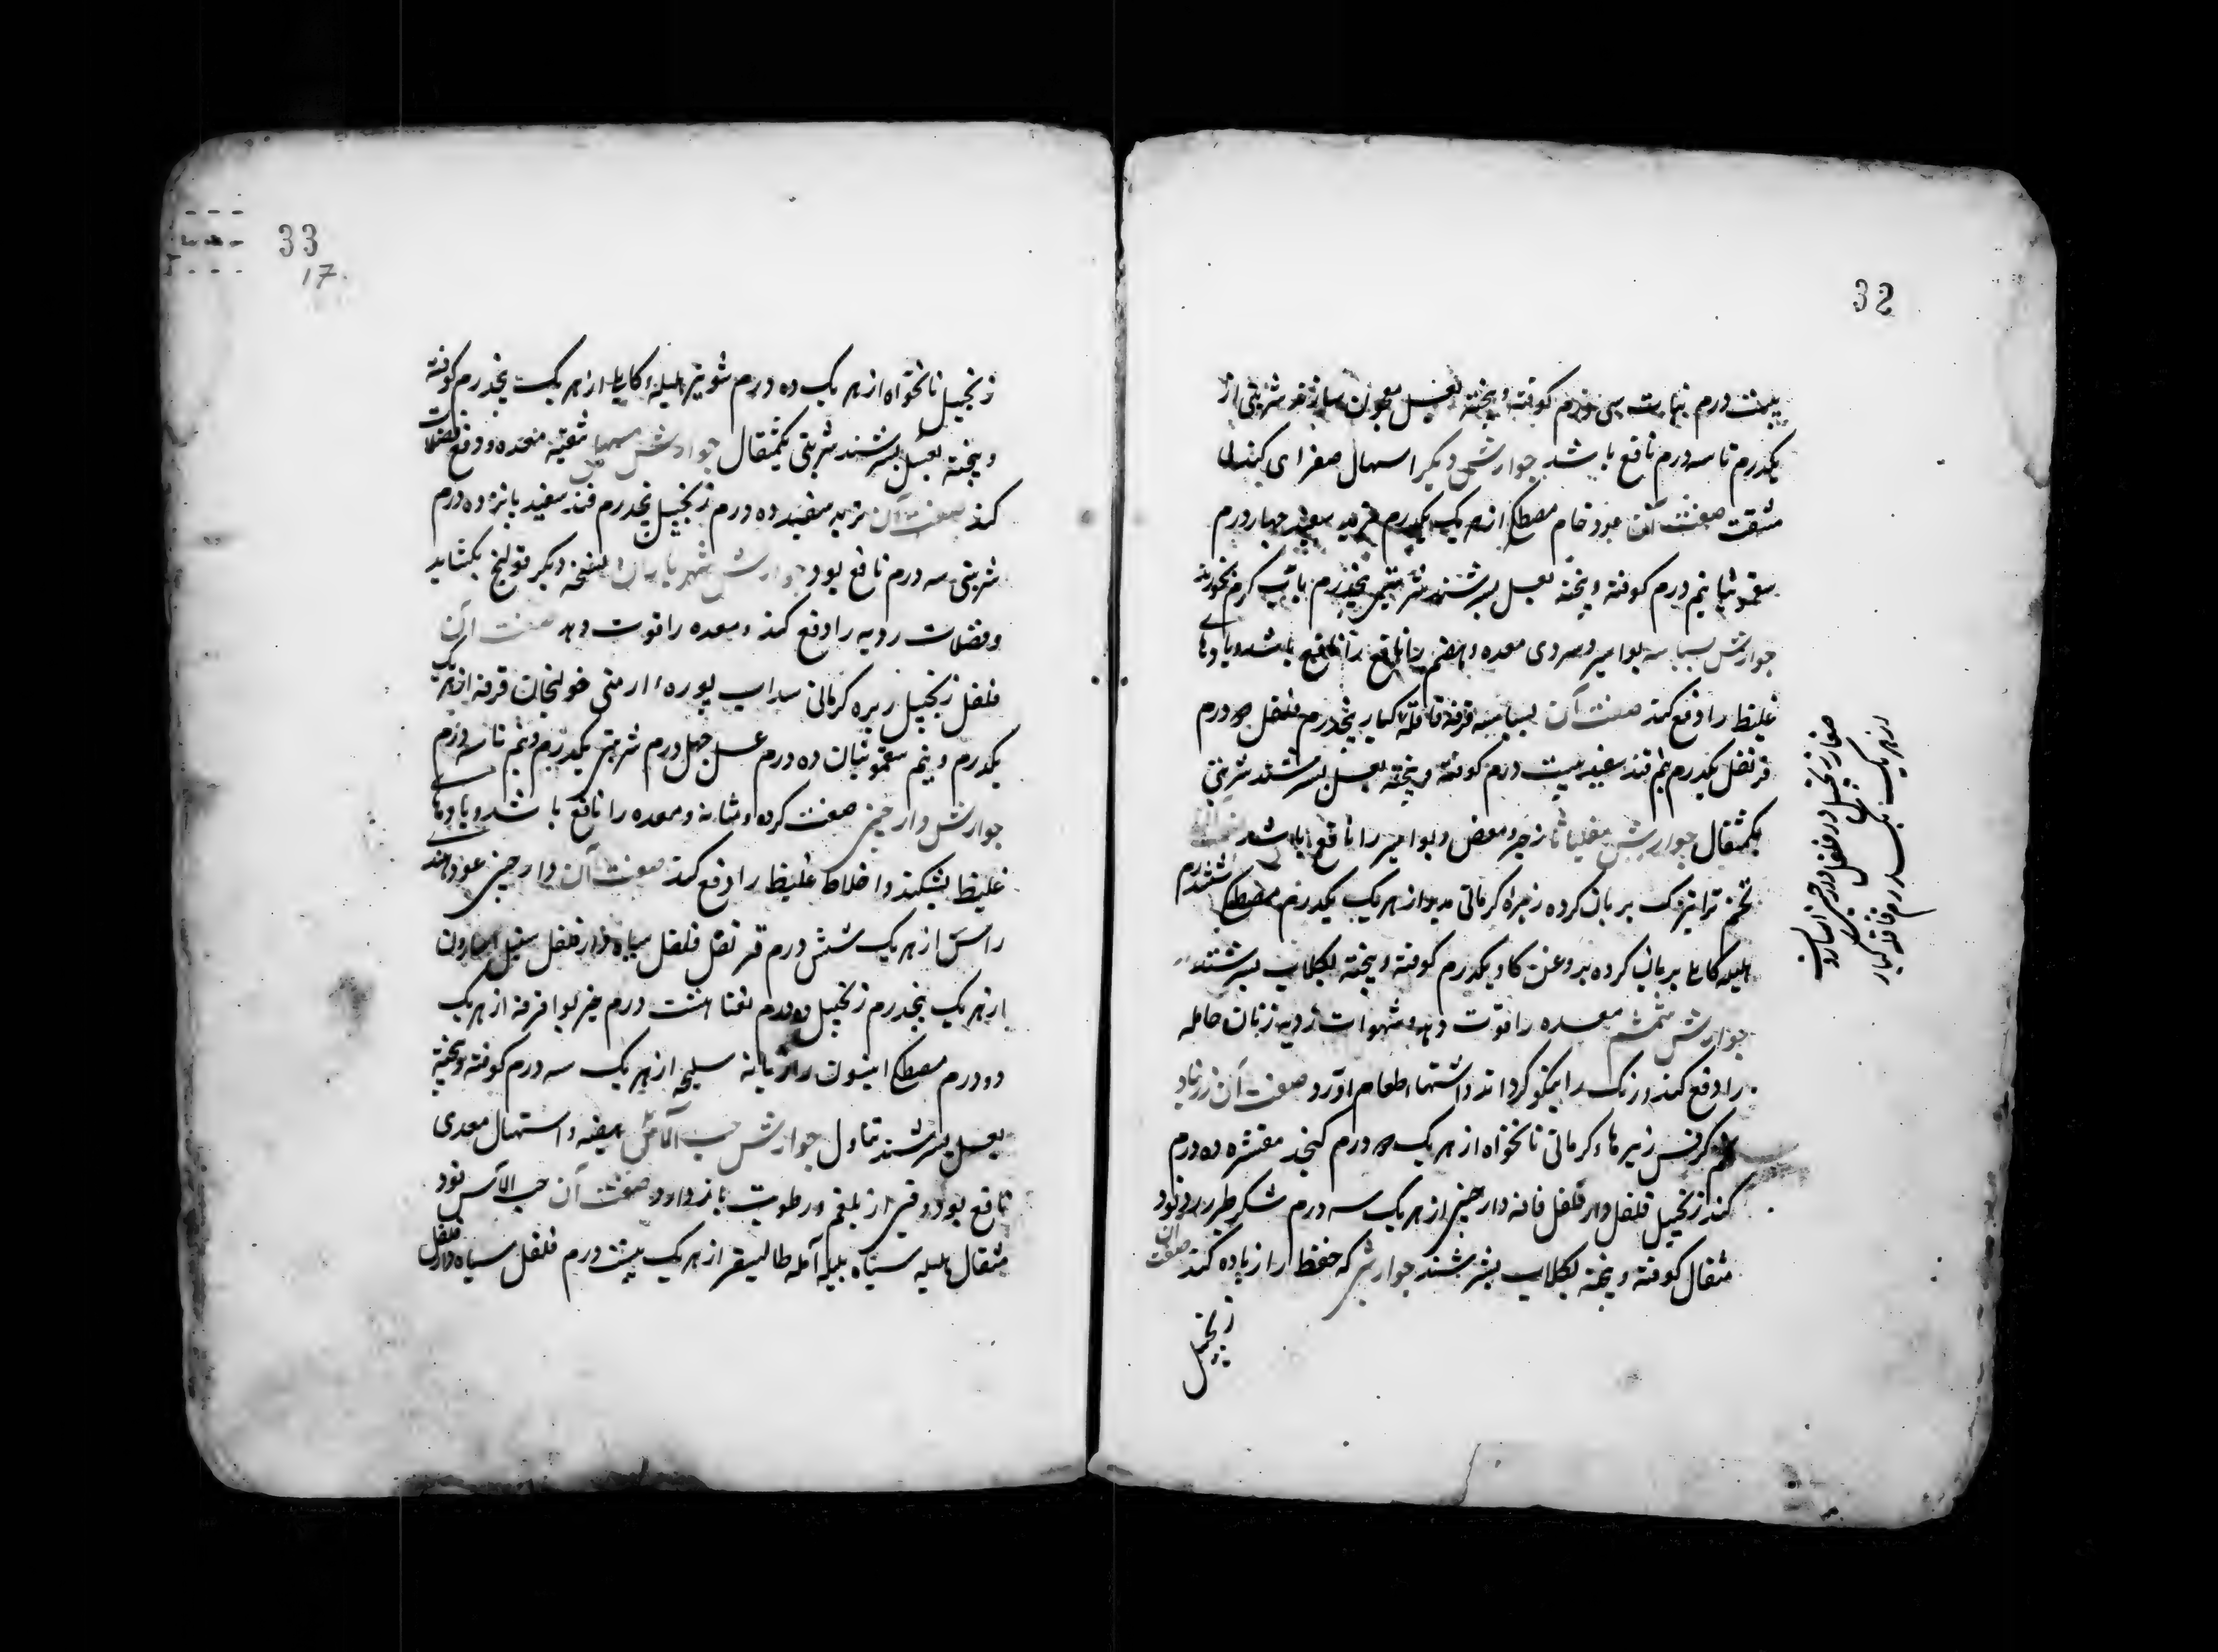 32
بیست درم نبات سی درم کوفته و پخته بعسل معجون سازند شربتی از
یکدرم تا سه درم نافع باشد جوارش دیگر اسهال صفرای کند بی
مشقت صفت آن عود خام مصطکی از هر یک یکدرم تربد سفید چهار درم
سقمونیا نیم درم کوفته و پخته بعسل بسرشند شربتی پنجدرم باب گرم بخورند
جوارش بسباسه بواسیر و سردی معده و هضم را نافع باشد و بادهای
غلیظ را دفع کند صفت آن بسباسه قرفه قاقله کبار پنجدرم فلفل درم
قرنفل یکدرم نیم قند سفید بیست درم کوفته و پخته بعسل بسرشند شربتی
یکمثقال جوارش مقلیاثا زحیر و مغص و بواسیر را نافع باشد
تخم ترا تیزک بریان کرده زیره کرمانی مدبر از هر یک یکدرم مصطکی
هلیله کابلی بریان کرده بروغن کاو یکدرم کوفته و پخته بکلاب بسرشند
جوارش مشمشم معده را قوت دهد و شهوات ردیه زنان حامله
را دفع کند و رنک را نیکو کرداند و اشتهاء طعام آورد صفت آن زرنباد
تخم کرفس زیرهاء کرمانی نانخواه از هر یک درم کنجد مقشره ده درم
کندر زنجبیل فلفل دار فلفل دارچینی از هر یک سه درم شکر طبرزد نود
مثقال کوفته و پخته بکلاب بسرشند جوارش که حفظ را زیاده کند صفت آن
زنجبیل
صغار زنجبیل دارفلفل دارچینی اسارون
از هر یک سه درم قاقله کبار
33
17
زنجبیل نانخواه از هر یک ده درم شونیز هلیلهٔ کابلی از هر یک پنجدرم کوفته
و پخته بعسل بسرشند شربتی یکمثقال جوارش مسهل تنقیه معده و دفع فضلات
کند صفت آن تربد سفید ده درم زنجبیل پنجدرم قند سفید پانزده درم
شربتی سه درم نافع بود جوارش شهریاران نفخه و دیکر قولنج بکشاید
و فضلات ردیه را دفع کند و معده را قوت دهد صفت آن
فلفل زنجبیل زیره کرمانی سداب بورهٔ ارمنی خولنجان قرفه از هر یک
یکدرم و نیم سقمونیا ده درم عسل چهل درم شربتی یکدرم و نیم تا سه درم
جوارش دارچینی صفت کرده و مثانه و معده را نافع باشد و بادهای
غلیظ بشکند و اخلاط غلیظ را دفع کند صفت آن دارچینی عود هندی
راسن از هر یک شش درم قرنفل فلفل سیاه دارفلفل سنبل اسارون
از هر یک پنجدرم زنجبیل ده درم نعنا هشت درم خیربوا قرفه از هر یک
دو درم مصطکی انیسون رازیانه سلیخه از هر یک سه درم کوفته و پخته
بعسل بسرشند تناول جوارش حب الآس هیضه و اسهال معدی
نافع بود و قی از بلغم و رطوبت باز دارد صفت آن حب الآس نود
مثقال هلیله سیاه بلیله آمله طالیسفر از هر یک بیست درم فلفل سیاه دارفلفل